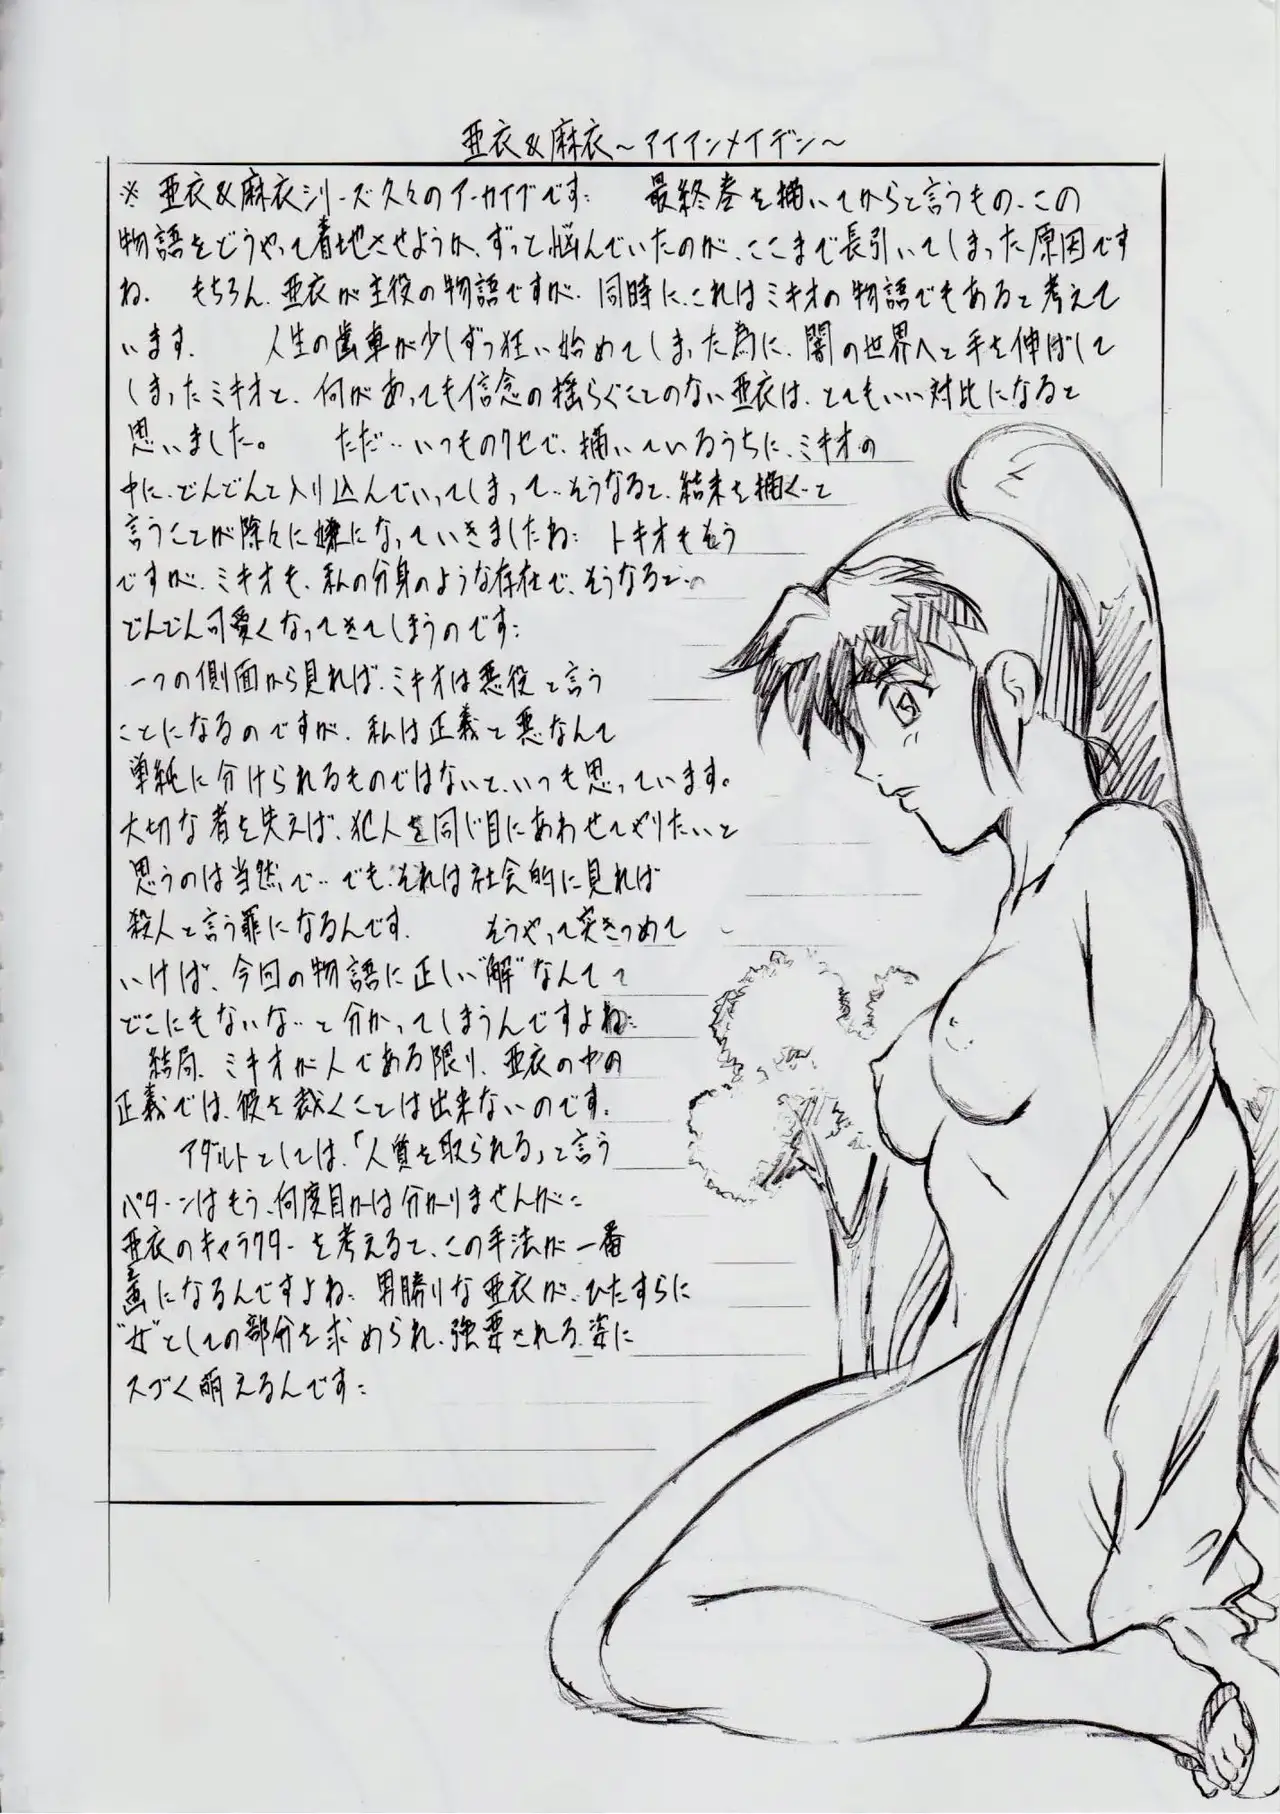 亜衣&麻衣～アイアンメイデン～
※ 亜衣&麻衣シリーズ久々のアーカイブです； 最終巻を描いてからと言うもの、この
物語をどうやって着地させようか、ずっと悩んでいたのが、ここまで長引いてしまった原因です
ね. もちろん、亜衣が主役の物語ですが、同時に、これはミキオの物語でもあると考えて
います. 人生の歯車が少しずつ狂い始めてしまった為に、闇の世界へと手を伸ばして
しまったミキオと、何があっても信念の揺らぐことのない亜衣は、とてもいい対比になると
思いました。 ただ…いつものクセで、描いているうちに、ミキオの
中に、どんどんと入り込んでいってしまって…そうなると、結末を描く…と
言うことが除々に嫌になっていきましたね； トキオもそう
ですが、ミキオも、私の分身のような存在で、そうなると…
どんどん可愛くなってきてしまうのです；
一つの側面から見れば、ミキオは悪役と言う
ことになるのですが、私は正義と悪なんて
単純に分けられるものではないと、いつも思っています。
大切な者を失えば、犯人を同じ目にあわせてやりたいと
思うのは当然で…でも、それは社会的に見れば
殺人と言う罪になるんです. そうやって突きつめて
いけば、今回の物語に正しい"解"なんて
どこにもないな…と分かってしまうんですよね；
結局、ミキオが人である限り、亜衣の中の
正義では、彼を裁くことは出来ないのです。
アダルトとしては、「人質を取られる」と言う
パターンはもう、何度目かは分かりませんが；
亜衣のキャラクターを考えると、この手法が一番
画になるんですよね； 男勝りな亜衣が、ひたすらに
"女"としての部分を求められ、強要される姿に
スゴく萌えるんです；